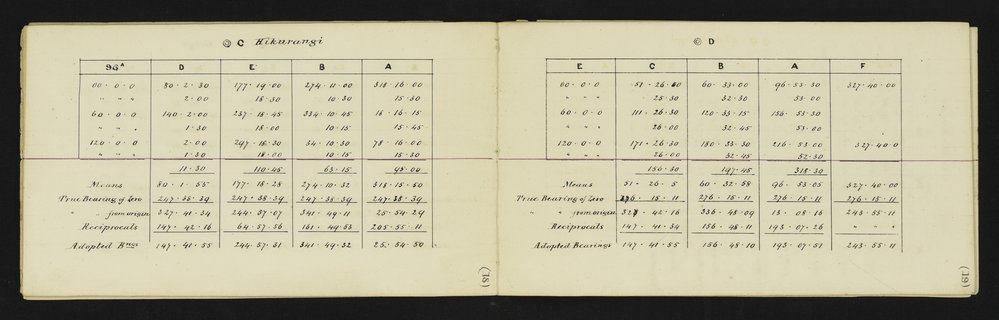 © C Hikurangi
96ᴬ D E B A
00·0·0 80·2·30 177·19·00 274·11·00 318·16·00
" " " 2·00 18·30 10·30 15·30
60·0·0 140·2·00 237·18·45 334·10·45 18·16·15
" " " 1·30 18·00 10·15 15·45
120·0·0 2·00 297·18·30 34·10·30 78·16·00
" " " 1·30 18·00 10·15 15·30
11·30 110·45 63·15 95·00
Means 80·1·55 177·18·28 274·10·32 318·15·50
True Bearing of Zero 247·38·39 247·38·39 247·38·39 247·38·39
" " from origin 327·41·34 244·57·07 341·49·11 25·54·29
Reciprocals 147·42·16 64·57·56 161·49·53 205·55·11
Adopted Bngs 147·41·55 244·57·31 341·49·32 25·54·50
(18)
© D
E C B A F
00·0·0 51·26·00 60·33·00 96·53·30 327·40·00
" " " 25·30 32·30 53·00
60·0·0 111·26·30 120·33·15 156·53·30
" " " 26·00 32·45 53·00
120·0·0 171·26·30 180·33·30 216·53·00 327·40·0
" " " 26·00 32·45 52·30
156·30 197·45 318·30
Means 51·26·5 60·32·58 96·53·05 327·40·00
True Bearing of Zero 276·15·11 276·15·11 276·15·11 276·15·11
" " from origin 327·42·16 336·48·09 13·08·16 243·55·11
Reciprocals 147·41·34 156·48·11 193·07·26 " " "
Adopted Bearings 147·41·55 156·48·10 193·07·51 243·55·11
(19)